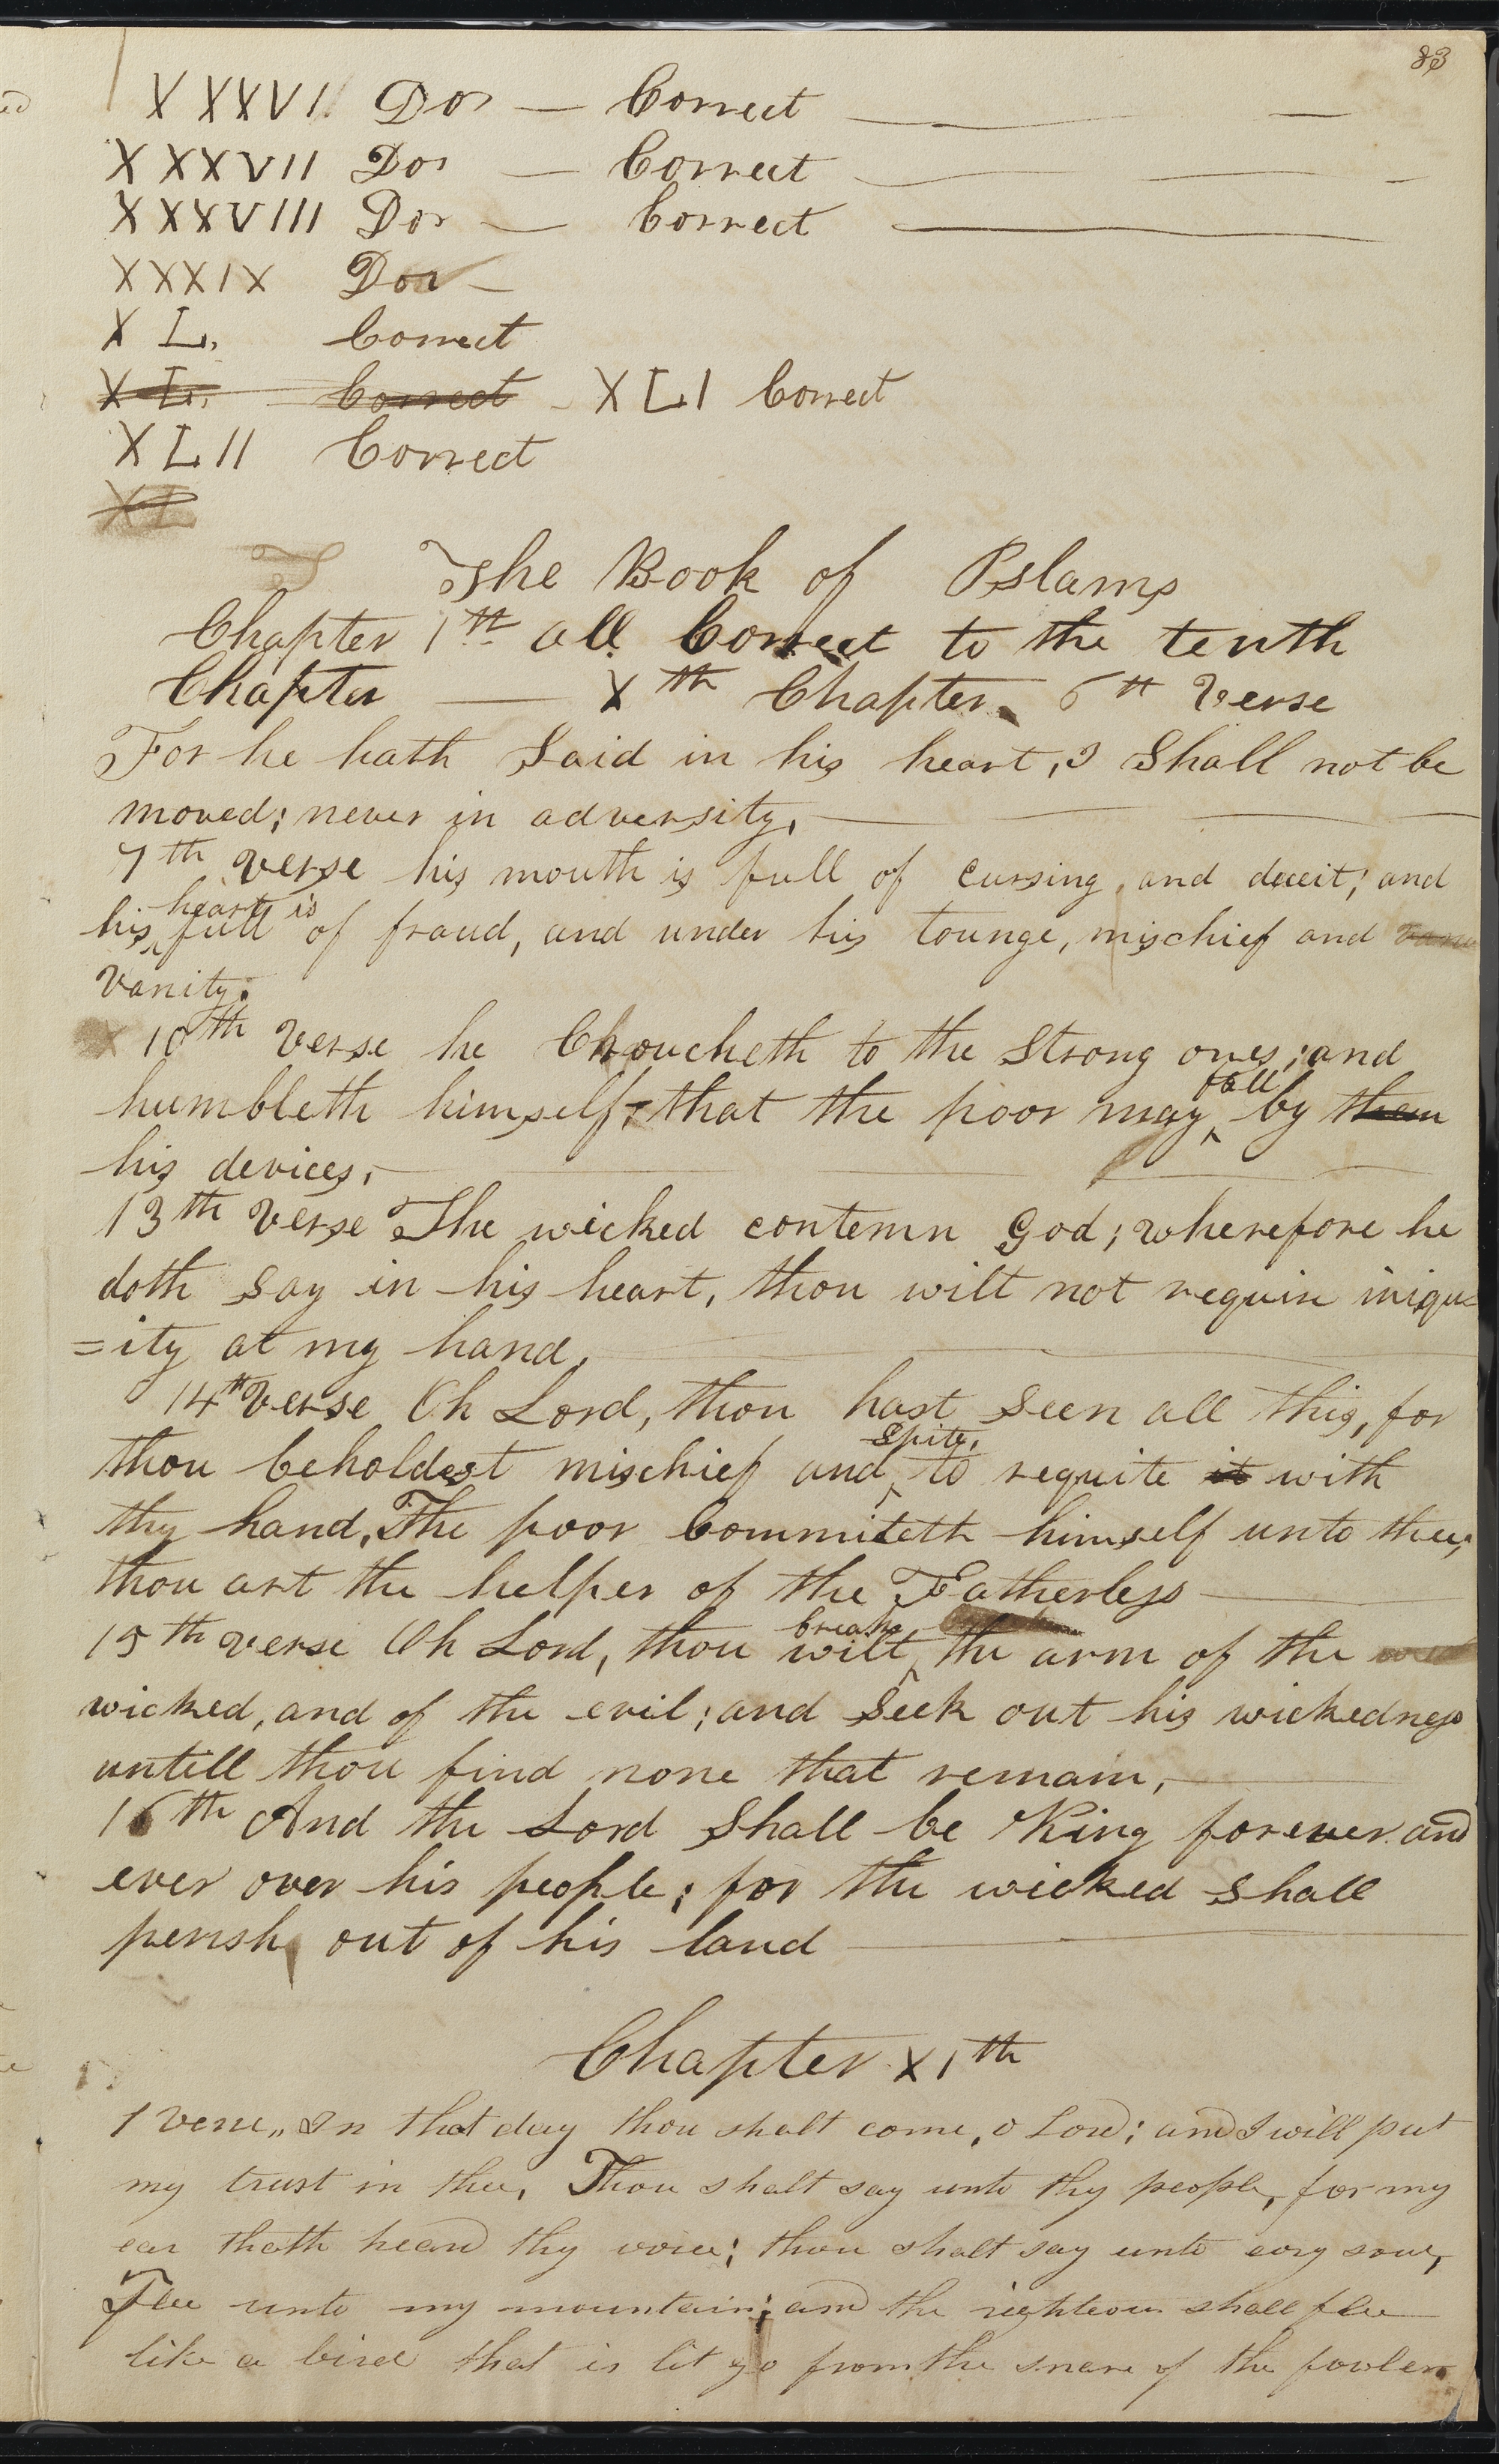 83
XXXVI Dos — Correct —
XXXVII Dos — Correct —
XXXVIII Dos — Correct —
XXXIX Dos —
XL. Correct
XL. Correct XLI Correct
XLII Correct
XL
The Book of Pslams
Chapter 1th all Correct to the tenth
Chapter — Xth Chapter 6th verse
For he hath Said in his heart, I Shall not be
moved; never in adversity, —
7th verse his mouth is full of cursing, and deceit; and
his heart is full of fraud, and under his tounge, mischief and
vanity.
10th verse he Choucheth to the Strong ones; and
humbleth himself, that the poor may fall by them
his devices, —
13th verse The wicked contemn God; wherefore he
doth Say in his heart, thou wilt not requiri iniqu=
=ity at my hand, —
14th verse Oh Lord, thou hast Seen all this, for
thou beholdest mischief and spite, to requite it with
thy hand, The poor Commiteth himself unto thee,
thou art the helper of the Fatherless —
15th verse Oh Lord, thou wilt break the arm of the
wicked, and of the evil; and Seek out his wickedness
untill thou find none that remain, —
16th And the Lord Shall be King forever and
ever over his people; for the wicked Shall
perish out of his land —
Chapter XIth
1 verse,, In that day thou shalt come, o Lord; and I will put
my trust in thee, Thou shalt say unto thy people, for my
ear thath heard thy voice; thou shalt say unto evry soul,
Flee unto my mountain; and the righteous shall flee
like a bird that is let go from the snare of the fowler